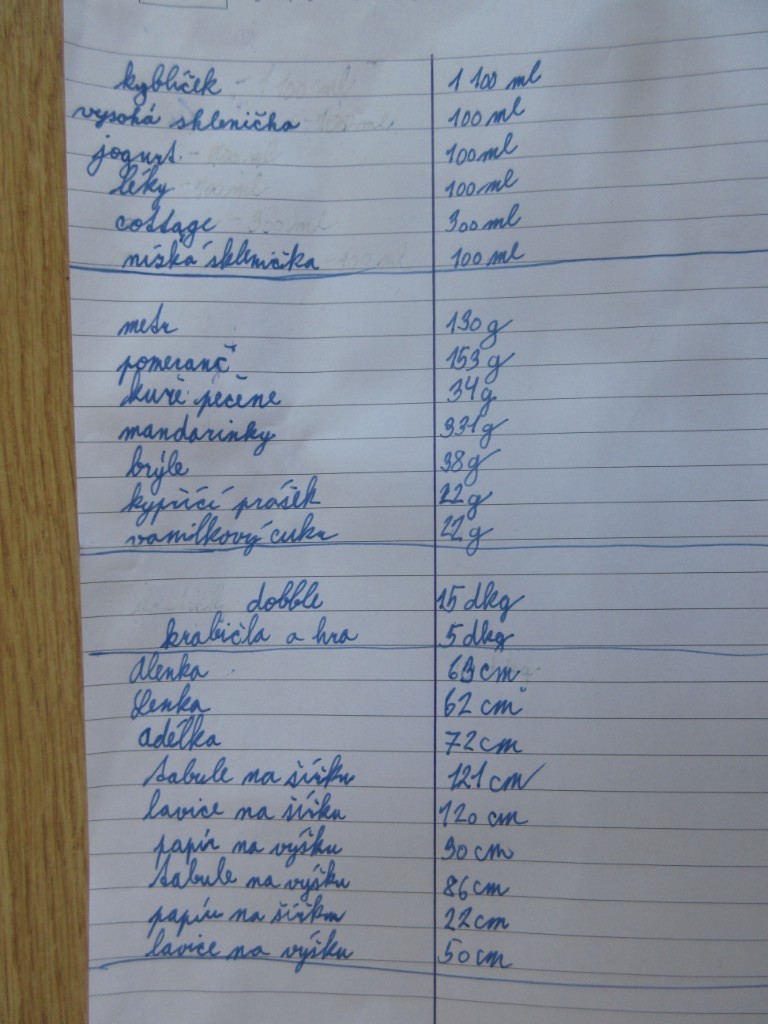 kyblíček 1 100 ml
vysoká sklenička 100 ml
jogurt 100 ml
léky 100 ml
cottage 300 ml
nízká sklenička 100 ml
metr 130 g
pomeranč 153 g
kuře pečené 34 g
mandarinky 331 g
brýle 38 g
kypřící prášek 22 g
vanilkový cukr 22 g
dobble 15 dkg
krabičla a hra 5 dkg
Alenka 63 cm
Lenka 62 cm
Adélka 72 cm
tabule na šířku 121 cm
lavice na šířku 120 cm
papír na výšku 30 cm
tabule na výšku 86 cm
papír na šířku 22 cm
lavice na výšku 50 cm